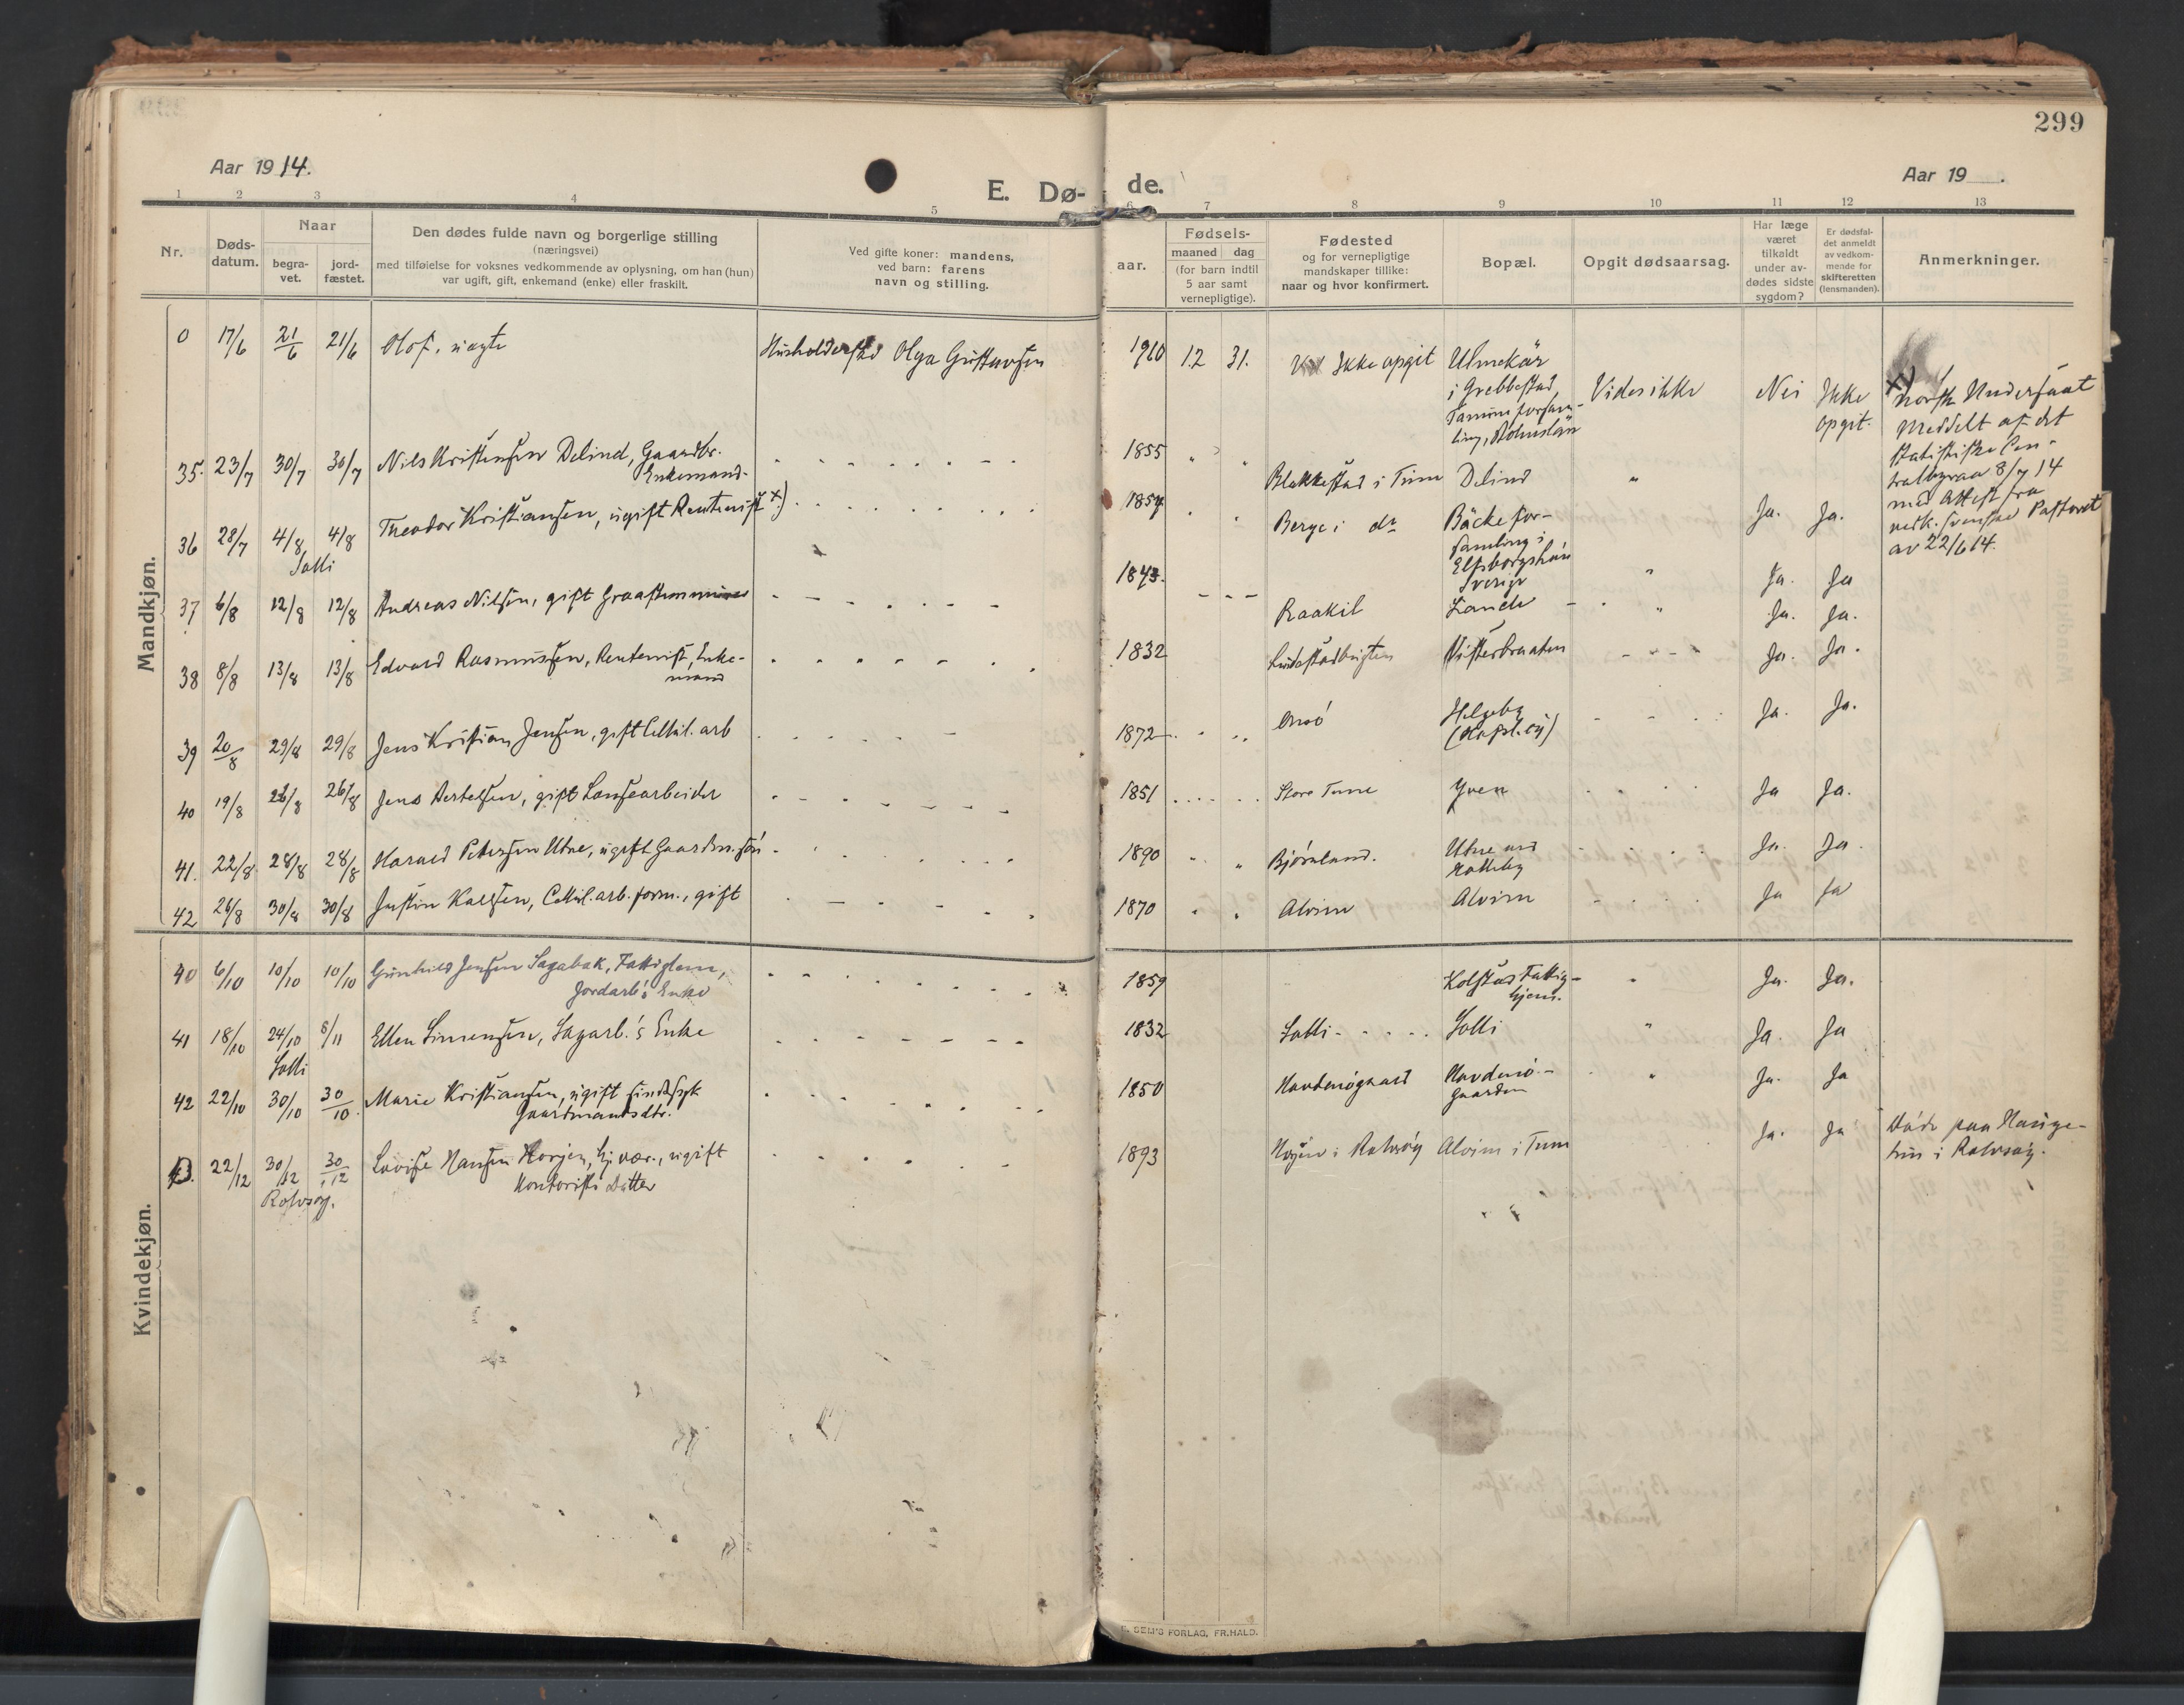 299
Aar 1914.
E. Dø-
de.
Aar 19 .
1 2 3 4 5 6 7 8 9 10 11 12 13
Nr.
Døds-
datum.
Naar
begra-
vet.
jord-
fæstet.
Den dødes fulde navn og borgerlige stilling
(næringsvei)
med tilføielse for voksnes vedkommende av oplysning, om han (hun)
var ugift, gift, enkemand (enke) eller fraskilt.
Ved gifte koner: mandens,
ved barn: farens
navn og stilling.
aar.
Fødsels-
maaned dag
(for barn indtil
5 aar samt
vernepligtige).
Fødested
og for vernepligtige
mandskaper tillike:
naar og hvor konfirmert.
Bopæl.
Opgit dødsaarsag.
Har læge
været
tilkaldt
under av-
dødes sidste
sygdom?
Er dødsfal-
det anmeldt
av vedkom-
mende for
skifteretten
(lensmanden).
Anmerkninger.
Mandkjøn.
0 17/6 21/6 21/6 Olof, uegte Olga Gustavsen 1910 12 31. Ikke opgit Ulmekär
i Grebbestad,
Vides ikke Nei Ikke
opgit.
x) Norsk Undersaat
meddelt af det
statistiske Cen-
tralbyraa 8/7 14
med Attest fra
vedk. svenske Pastorat
av 22/6 14.
35. 23/7 30/7 30/7 Nils Kristensen Delind, Gaardbr.
Enkemand. 1855 " " Blakkestad i Tune Delind "
36 28/7 4/8 4/8 Theodor Kristiansen, ugift Rentenist x) 1857 Berge i do Bäcke for-
samling i
Elfsborgslän
Sverige " Ja. Ja.
Solli
37 6/8 12/8 12/8 Andreas Nilsen, gift 1843. Raakil Lande " Ja. Ja.
38 8/8 13/8 13/8 Edvard Rasmussen, Rentenist, Enke-
mand 1832 Ja. Ja.
39 20/8 29/8 29/8 Jens Kristian Jensen, gift Cellul. arb 1872 Onsö Helgeby Ja. Ja.
40 19/8 26/8 26/8 Jens Bertelsen, gift Lousearbeider 1851 Store Tune Yven Ja Ja.
41. 22/8 28/8 28/8 Harald Petersen Utne, ugift Gaardm. søn 1890 " Bjørnland. Utne Ja. Ja.
42 26/8 30/8 30/8 Justin Karlsen, Cellul. arb. form., gift 1870 Alvim Alvim Ja Ja
Kvindekjøn.
40 6/10 10/10 10/10 Gunhild Jensen Sagabak, Fattiglem,
Jordarb.'s Enke 1859 Kolstad Fattig-
hjem. " Ja. Ja.
41 18/10 24/10 8/11 Ellen Simensen, Sagarb.'s Enke 1832 Solli Solli " Ja. Ja
Solli
42 22/10 30/10 30/10 Marie Kristiansen, ugift sindssyk
Gaardmandsdtr. 1850 Gaarden " Ja. Ja
43. 22/12 30/12 30/12 Lovise Hansen Horgen, hj. vær., ugift
Kontorists Datter 1893 Horgen i Rolvsøy Alvim i Tune Ja. Ja Døde paa Hauge-
tun i Rolvsøy.
Rolvsøy.
E. SEM'S FORLAG, FR.HALD.